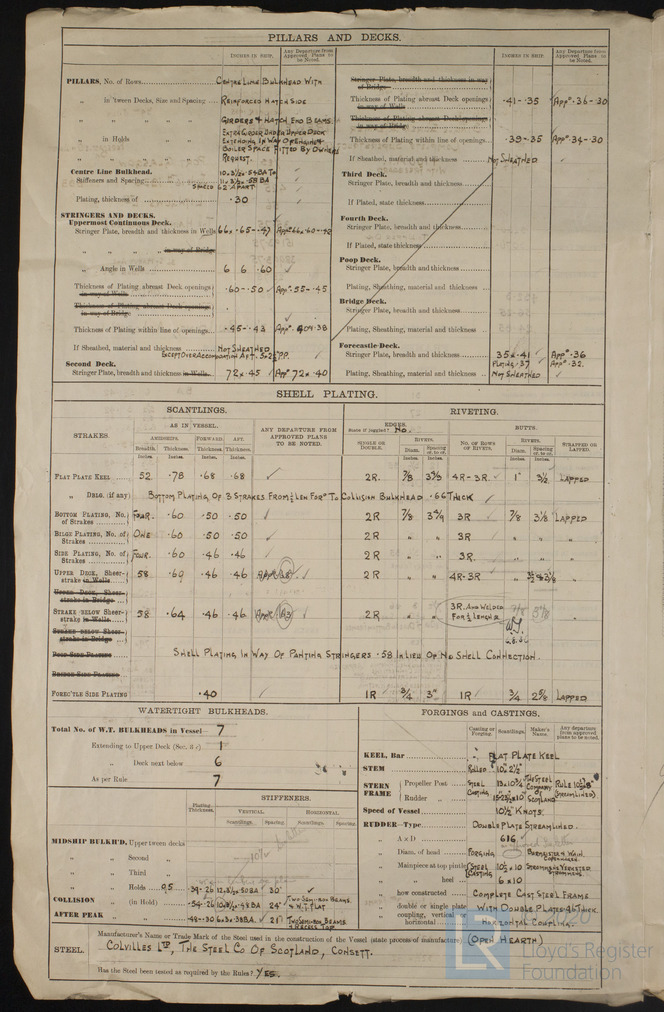 PILLARS AND DECKS.
INCHES IN SHIP.
Any Departure from Approved Plans to be Noted.
PILLARS, No. of Rows
CENTRE LINE BULKHEAD WITH
„ in 'tween Decks, Size and Spacing
REINFORCED HATCH SIDE
„ „ „ „
GIRDERS & HATCH END BEAMS.
„ in Holds „ „
EXTRA GIRDER UNDER UPPER DECK
EXTENDING IN WAY OF ENGINE &
BOILER SPACE FITTED BY OWNERS
REQUEST.
Centre Line Bulkhead.
Stiffeners and Spacing
SPACED 62" APART
Plating, thickness of
.30
STRINGERS AND DECKS.
Uppermost Continuous Deck.
Stringer Plate, breadth and thickness in Wells
66 x .65 - .47
App'd 66 x .60 - .42
„ „ „ „ in way of Bridge
„ Angle in Wells
6 6 .60
Thickness of Plating abreast Deck openings in way of Wells
.60 - .50
App'd .55 - .45
Thickness of Plating abreast Deck openings in way of Bridge
Thickness of Plating within line of openings
.45 - .43
App'd .40 & .38
If Sheathed, material and thickness
NOT SHEATHED
EXCEPT OVER ACCOMMODATION AFT. 5 x 2½ P.P.
Second Deck.
Stringer Plate, breadth and thickness in Wells
72 x .45
App'd 72 x .40
INCHES IN SHIP.
Any Departure from Approved Plans to be Noted.
Stringer Plate, breadth and thickness in way of Bridge
Thickness of Plating abreast Deck openings in way of Wells
.41 - .35
App'd .36 - .30
Thickness of Plating abreast Deck openings in way of Bridge
Thickness of Plating within line of openings
.39 - .35
App'd .34 - .30
If Sheathed, material and thickness
NOT SHEATHED
Third Deck.
Stringer Plate, breadth and thickness
If Plated, state thickness
Fourth Deck.
Stringer Plate, breadth and thickness
If Plated, state thickness
Poop Deck.
Stringer Plate, breadth and thickness
Plating, Sheathing, material and thickness
Bridge Deck.
Stringer Plate, breadth and thickness
Plating, Sheathing, material and thickness
Forecastle Deck.
Stringer Plate, breadth and thickness
35 x .41
App'd .36
PLATING .37
App'd .32.
Plating, Sheathing, material and thickness
NOT SHEATHED
SHELL PLATING.
SCANTLINGS.
RIVETING.
STRAKES.
AS IN VESSEL.
AMIDSHIPS. FORWARD. AFT.
Breadth. Thickness. Thickness. Thickness.
Inches. Inches. Inches. Inches.
ANY DEPARTURE FROM APPROVED PLANS TO BE NOTED.
EDGES.
State if joggled? No.
SINGLE OR DOUBLE.
RIVETS.
Diam. Spacing cr. to cr.
Inches. Inches.
BUTTS.
No. OF ROWS OF RIVETS.
RIVETS.
Diam. Spacing cr. to cr.
Inches. Inches.
STRAPPED OR LAPPED.
FLAT PLATE KEEL
52 .78 .68 .68
2R. 7/8
4R - 3R 1" 3½ LAPPED
„ DBLG. (if any)
BOTTOM PLATING OF 3 STRAKES FROM ⅕ LEN FOR'D TO COLLISION BULKHEAD .66 THICK
BOTTOM PLATING, No. of Strakes
FOUR .60 .50 .50
2R 7/8
3R 7/8 3⅛ LAPPED
BILGE PLATING, No. of Strakes
ONE .60 .50 .50
2R „ „ 3R „ „ „
SIDE PLATING, No. of Strakes
FOUR .60 .46 .46
2R „ „ 3R. „ „ „
UPPER DECK, Sheer-strake in Wells
58 .46 .46
2R „ „ 4R-3R
UPPER DECK, Sheer-strake in Bridge
STRAKE BELOW Sheer-strake in Wells
58 .64 .46 .46
2R „ „
3R. AND WELDED
FOR ½ LENGTH
STRAKE BELOW Sheer-strake in Bridge
POOP SIDE PLATING
SHELL PLATING IN WAY OF PANTING STRINGERS .58 IN LIEU OF NO SHELL CONNECTION.
BRIDGE SIDE PLATING
FOREC'TLE SIDE PLATING
.40
1R ¾ 3" 1R ¾ 2⅝ LAPPED
WATERTIGHT BULKHEADS.
Total No. of W.T. BULKHEADS in Vessel
7
Extending to Upper Deck
1
„ Deck next below
6
As per Rule
7
Plating Thickness.
STIFFENERS.
VERTICAL
HORIZONTAL
Scantlings. Spacing. Scantlings. Spacing.
MIDSHIP BULKH'D, Upper tween decks
„ Second „
„ Third „
„ Holds
30"
COLLISION „ (in Hold)
24"
TWO SEMI-BOX BEAMS
& W.T. FLAT
AFTER PEAK „ „
21"
TWO SEMI-BOX BEAMS
& RECESS TOP
FORGINGS and CASTINGS.
Casting or Forging.
Scantlings.
Maker's Name.
Any departure from approved plans to be noted.
KEEL, Bar
FLAT PLATE KEEL
STEM
ROLLED 10" 2½"
STERN FRAME
Propeller Post
STEEL
THE STEEL
Rudder „
CASTING
COMPANY
OF
SCOTLAND
(STREAMLINED)
Speed of Vessel
10½ KNOTS.
RUDDER—Type
DOUBLE PLATE STREAMLINED.
„ A x D
616
„ Diam. of head
FORGING
BURMEISTER & WAIN.
COPENHAGEN
„ Mainpiece at top pintle
STEEL
10½ x 10
CASTING
„ „ heel
6 x 10
„ how constructed
COMPLETE CAST STEEL FRAME
„ double or single plate
WITH DOUBLE PLATES .46 THICK
„ coupling, vertical or horizontal
HORIZONTAL COUPLING.
STEEL.
Manufacturer's Name or Trade Mark of the Steel used in the construction of the Vessel (state process of manufacture)
(OPEN HEARTH)
COLVILLES LTD, THE STEEL CO OF SCOTLAND, CONSETT.
Has the Steel been tested as required by the Rules? YES.
LR
Lloyd's Register
Foundation